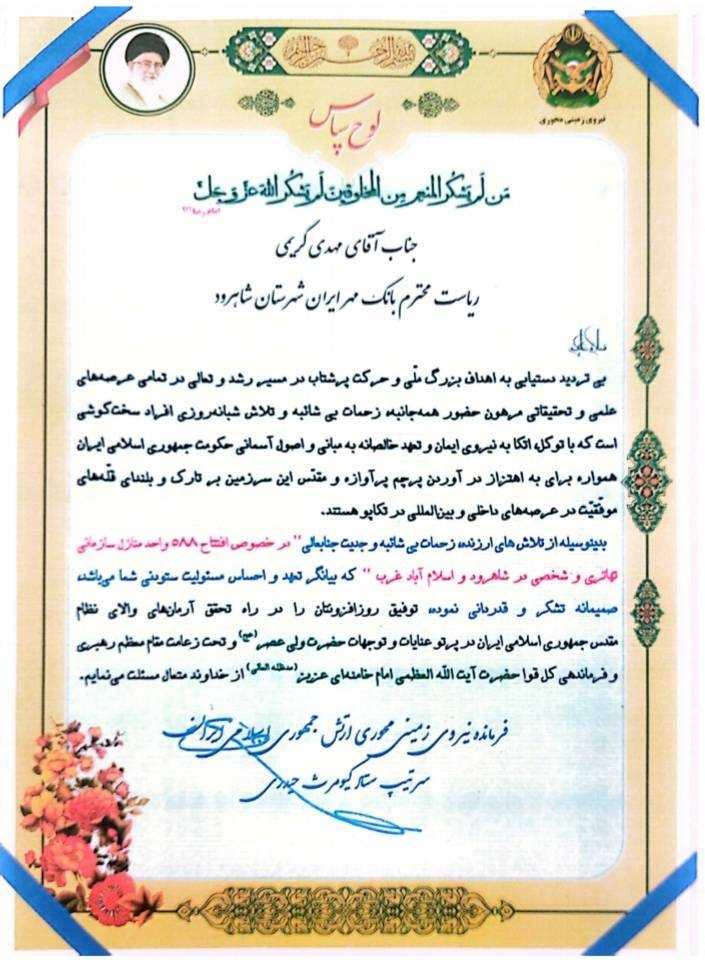 بسم الله الرحمن الرحیم
نیروی زمینی محوری
لوح سپاس
مَن لَم یَشکُرِ المُنعِمَ مِنَ المَخلوقینَ لَم یَشکُرِ اللهَ عَزَّ وَ جَلَّ
جناب آقای مهدی کریمی
ریاست محترم بانک مهر ایران شهرستان شاهرود
سلام علیکم
بی تردید دستیابی به اهداف بزرگ ملّی و حرکت پرشتاب در مسیر رشد و تعالی در تمامی عرصه‌های
علمی و تحقیقاتی مرهون حضور همه‌جانبه، زحمات بی شائبه و تلاش شبانه‌روزی افراد سخت‌کوشی
است که با توکل، اتکا به نیروی ایمان و تعهد خالصانه به مبانی و اصول آسمانی حکومت جمهوری اسلامی ایران
همواره برای به اهتزاز در آوردن پرچم پرآوازه و مقدّس این سرزمین بر تارک و بلندای قلّه‌های
موفقیّت در عرصه‌های داخلی و بین‌المللی در تکاپو هستند.
بدینوسیله از تلاش های ارزنده، زحمات بی شائبه و جدیت جنابعالی" در خصوص افتتاح ۵۸۸ واحد منازل سازمانی
جائزی و شخصی در شاهرود و اسلام آباد غرب " که بیانگر تعهد و احساس مسئولیت ستودنی شما می‌باشد،
صمیمانه تشکر و قدردانی نموده، توفیق روزافزونتان را در راه تحقق آرمان‌های والای نظام
مقدس جمهوری اسلامی ایران در پرتو عنایات و توجهات حضرت ولی عصر (عج) و تحت زعامت مقام معظم رهبری
و فرماندهی کل قوا حضرت آیت الله العظمی امام خامنه‌ای عزیز (مدظله العالی) از خداوند متعال مسئلت می‌نمایم.
فرمانده نیروی زمینی محوری ارتش جمهوری اسلامی ایران
سرتیپ ستاد کیومرث حیدری